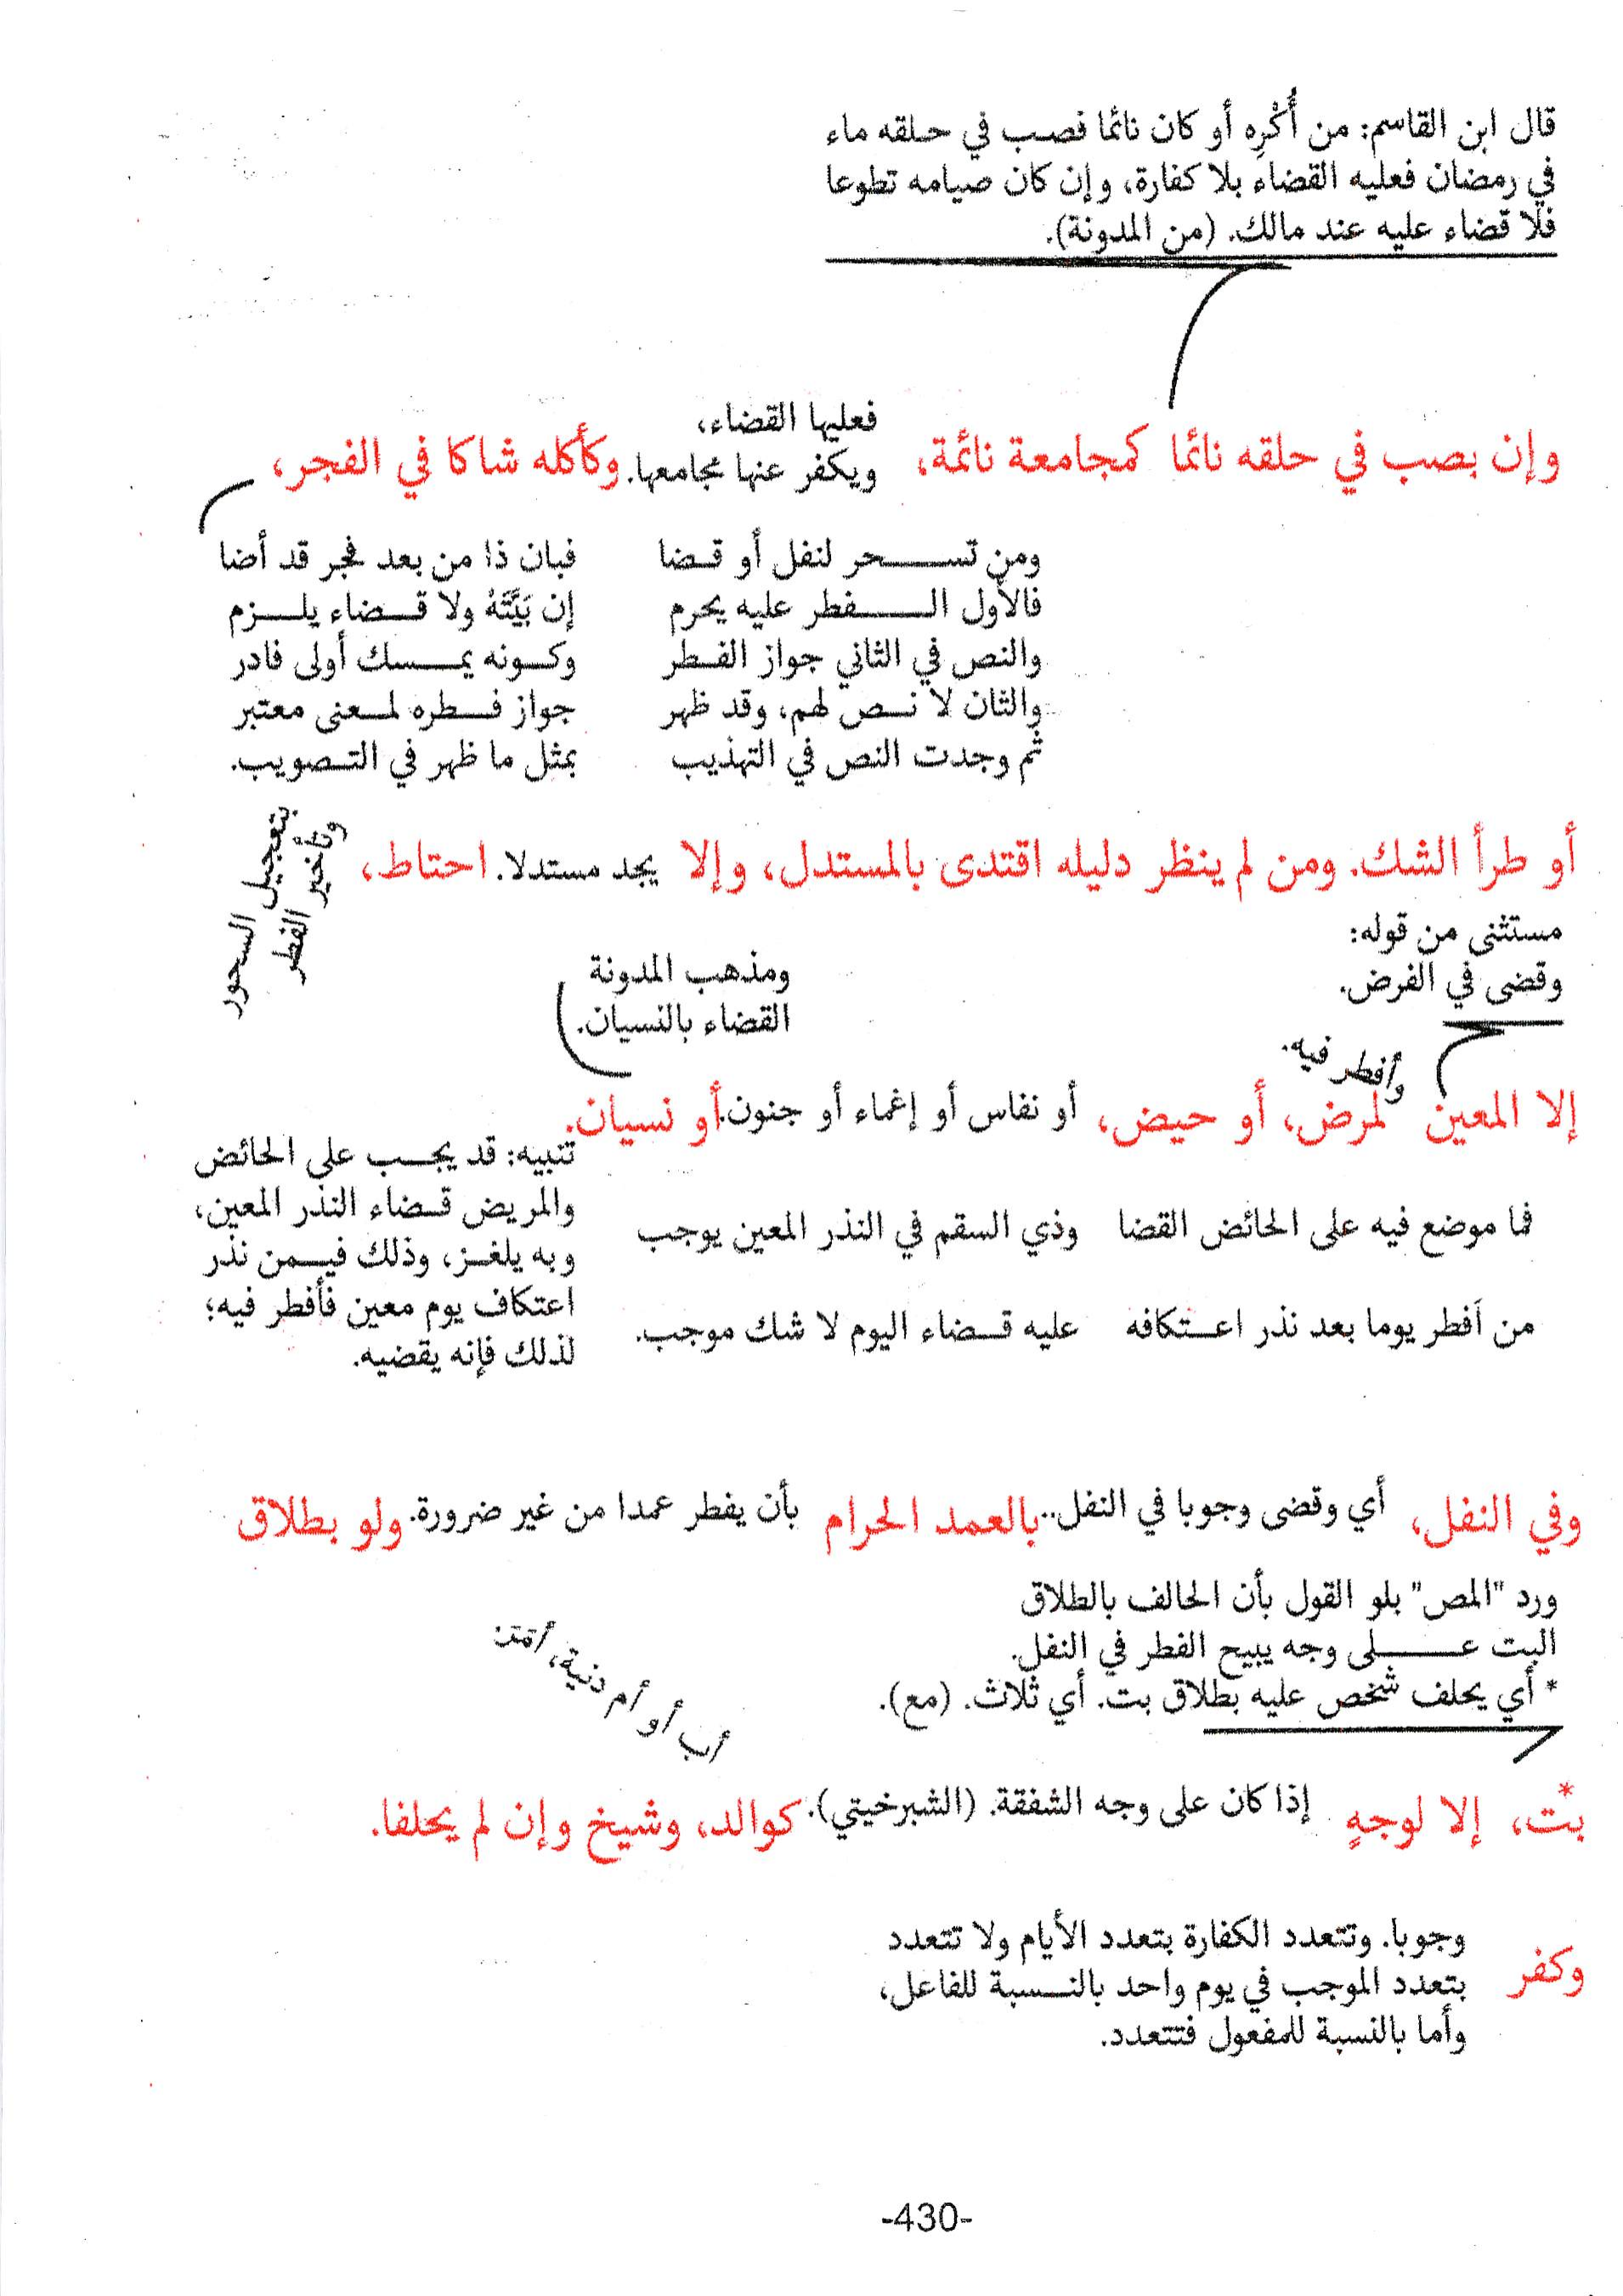 قال ابن القاسم: من أُكْرِه أو كان نائما فصب في حلقه ماء
في رمضان فعليه القضاء بلا كفارة، وإن كان صيامه تطوعا
فلا قضاء عليه عند مالك. (من المدونة).
وإن بصب في حلقه نائما كمجامعة نائمة، فعليها القضاء، ويكفر عنها مجامعها. وكأكله شاكا في الفجر،
ومن تسحر لنفل أو قضا فبان ذا من بعد فجر قد أضا
فالأول الفطر عليه يحرم إن بَيَّتَهُ ولا قضاء يلزم
والنص في الثاني جواز الفطر وكونه يمسك أولى فادر
والثان لا نص لهم، وقد ظهر جواز فطره لمعنى معتبر
ثم وجدت النص في التهذيب بمثل ما ظهر في التصويب.
أو طرأ الشك. ومن لم ينظر دليله اقتدى بالمستدل، وإلا يجد مستدلا. احتاط،
بتعجيل السحور
وتأخير الفطر
مستثنى من قوله:
وقضى في الفرض.
ومذهب المدونة
القضاء بالنسيان.
وأفطر فيه.
إلا المعين لمرض، أو حيض، أو نفاس أو إغماء أو جنون. أو نسيان.
تنبيه: قد يجب على الحائض
والمريض قضاء النذر المعين،
وبه يلغز، وذلك فيمن نذر
اعتكاف يوم معين فأفطر فيه؛
لذلك فإنه يقضيه.
فما موضع فيه على الحائض القضا وذي السقم في النذر المعين يوجب
من أفطر يوما بعد نذر اعتكافه عليه قضاء اليوم لا شك موجب.
وفي النفل، أي وقضى وجوبا في النفل.. بالعمد الحرام بأن يفطر عمدا من غير ضرورة. ولو بطلاق
ورد "المص" بلو القول بأن الحالف بالطلاق
البت على وجه يبيح الفطر في النفل.
* أي يحلف شخص عليه بطلاق بت. أي ثلاث. (مع).
أب أو أم دنية،
بتّ*، إلا لوجهٍ إذا كان على وجه الشفقة. (الشبرخيتي). كوالد، وشيخ وإن لم يحلفا.
وكفر وجوبا. وتتعدد الكفارة بتعدد الأيام ولا تتعدد
بتعدد الموجب في يوم واحد بالنسبة للفاعل،
وأما بالنسبة للمفعول فتتعدد.
-430-